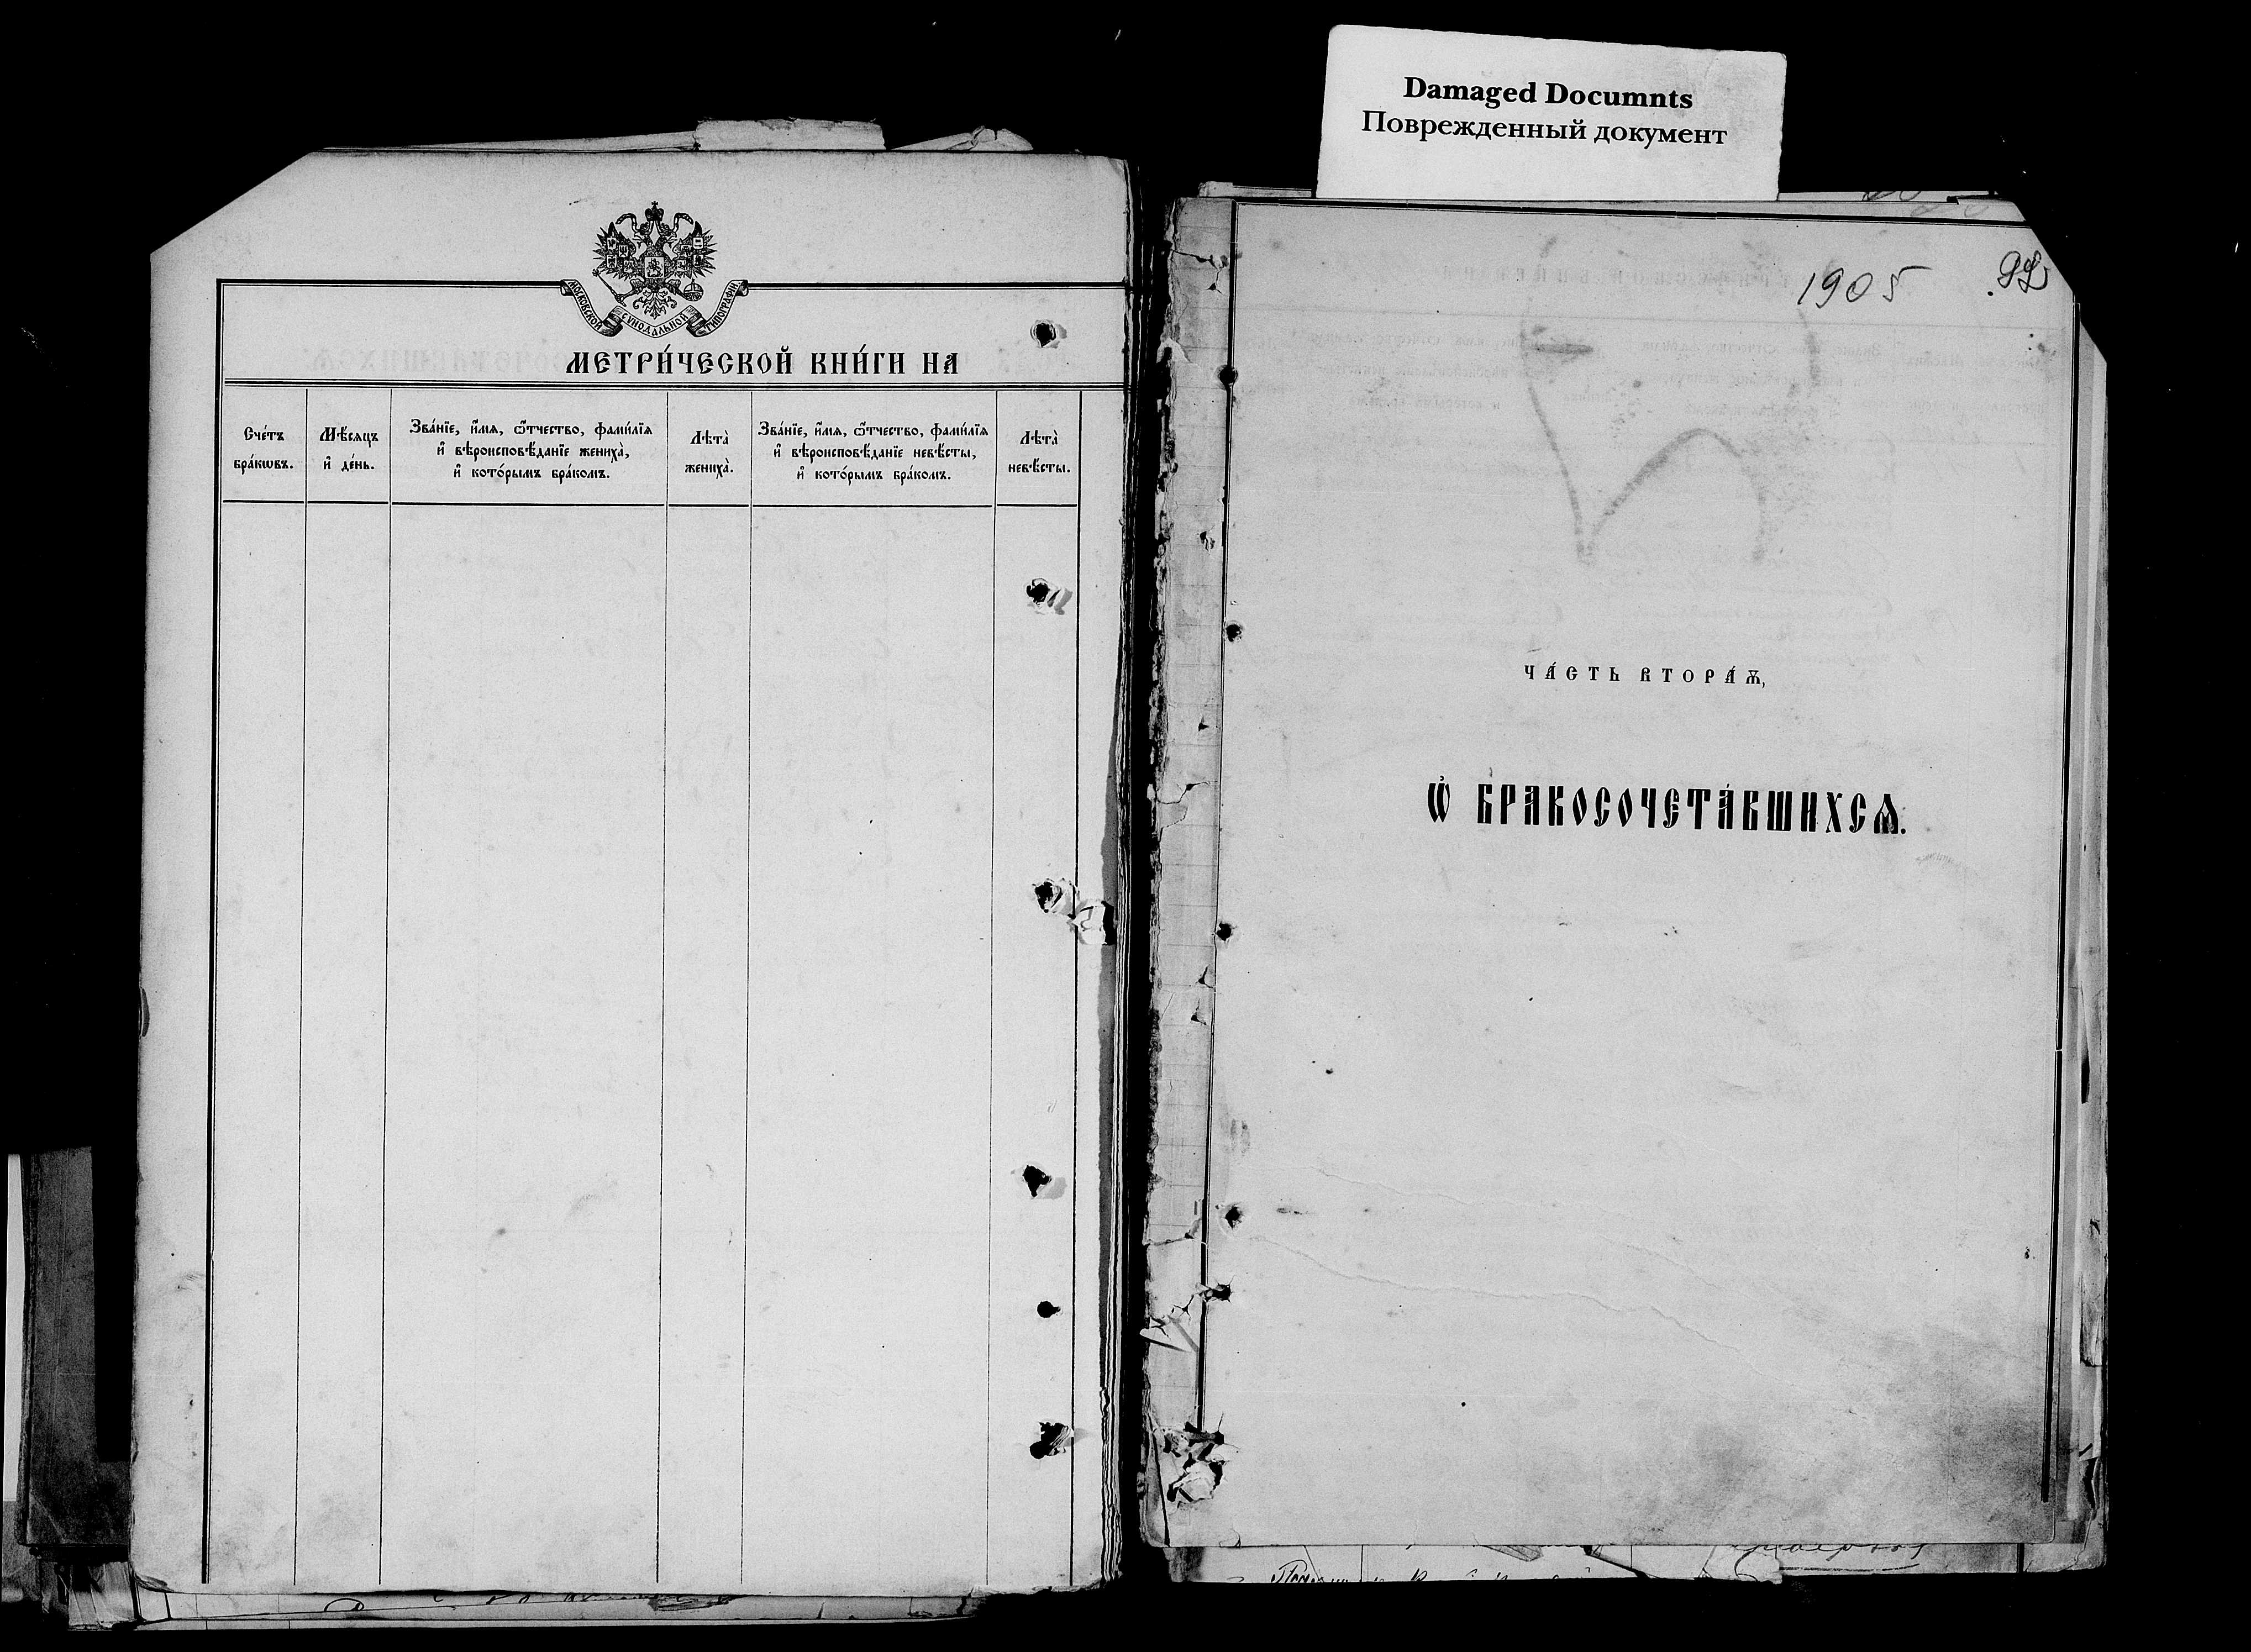 Damaged Documnts
Поврежденный документ
МОСКОВСКОЙ СѴНОДАЛЬНОЙ ТИПОГРАФІИ
МЕТРИ́ЧЕСКОЙ КНИ́ГИ НА
Сче́тъ бра́кѡвъ.
Мѣ́сяцъ и҆ де́нь.
Зва́нїе, и҆́мя, ѻ҆́тчество, фами́лїя
и҆ вѣроисповѣ́данїе жениха̀,
и҆ кото́рымъ бра́комъ.
Лѣта̀ жениха̀.
Зва́нїе, и҆́мя, ѻ҆́тчество, фами́лїя
и҆ вѣроисповѣ́данїе невѣ́сты,
и҆ кото́рымъ бра́комъ.
Лѣта̀ невѣ́сты.
1905
ЧА́СТЬ ВТОРА́Ѧ,
Ѡ҆ БРАКОСОЧЕТА́ВШИХСѦ.